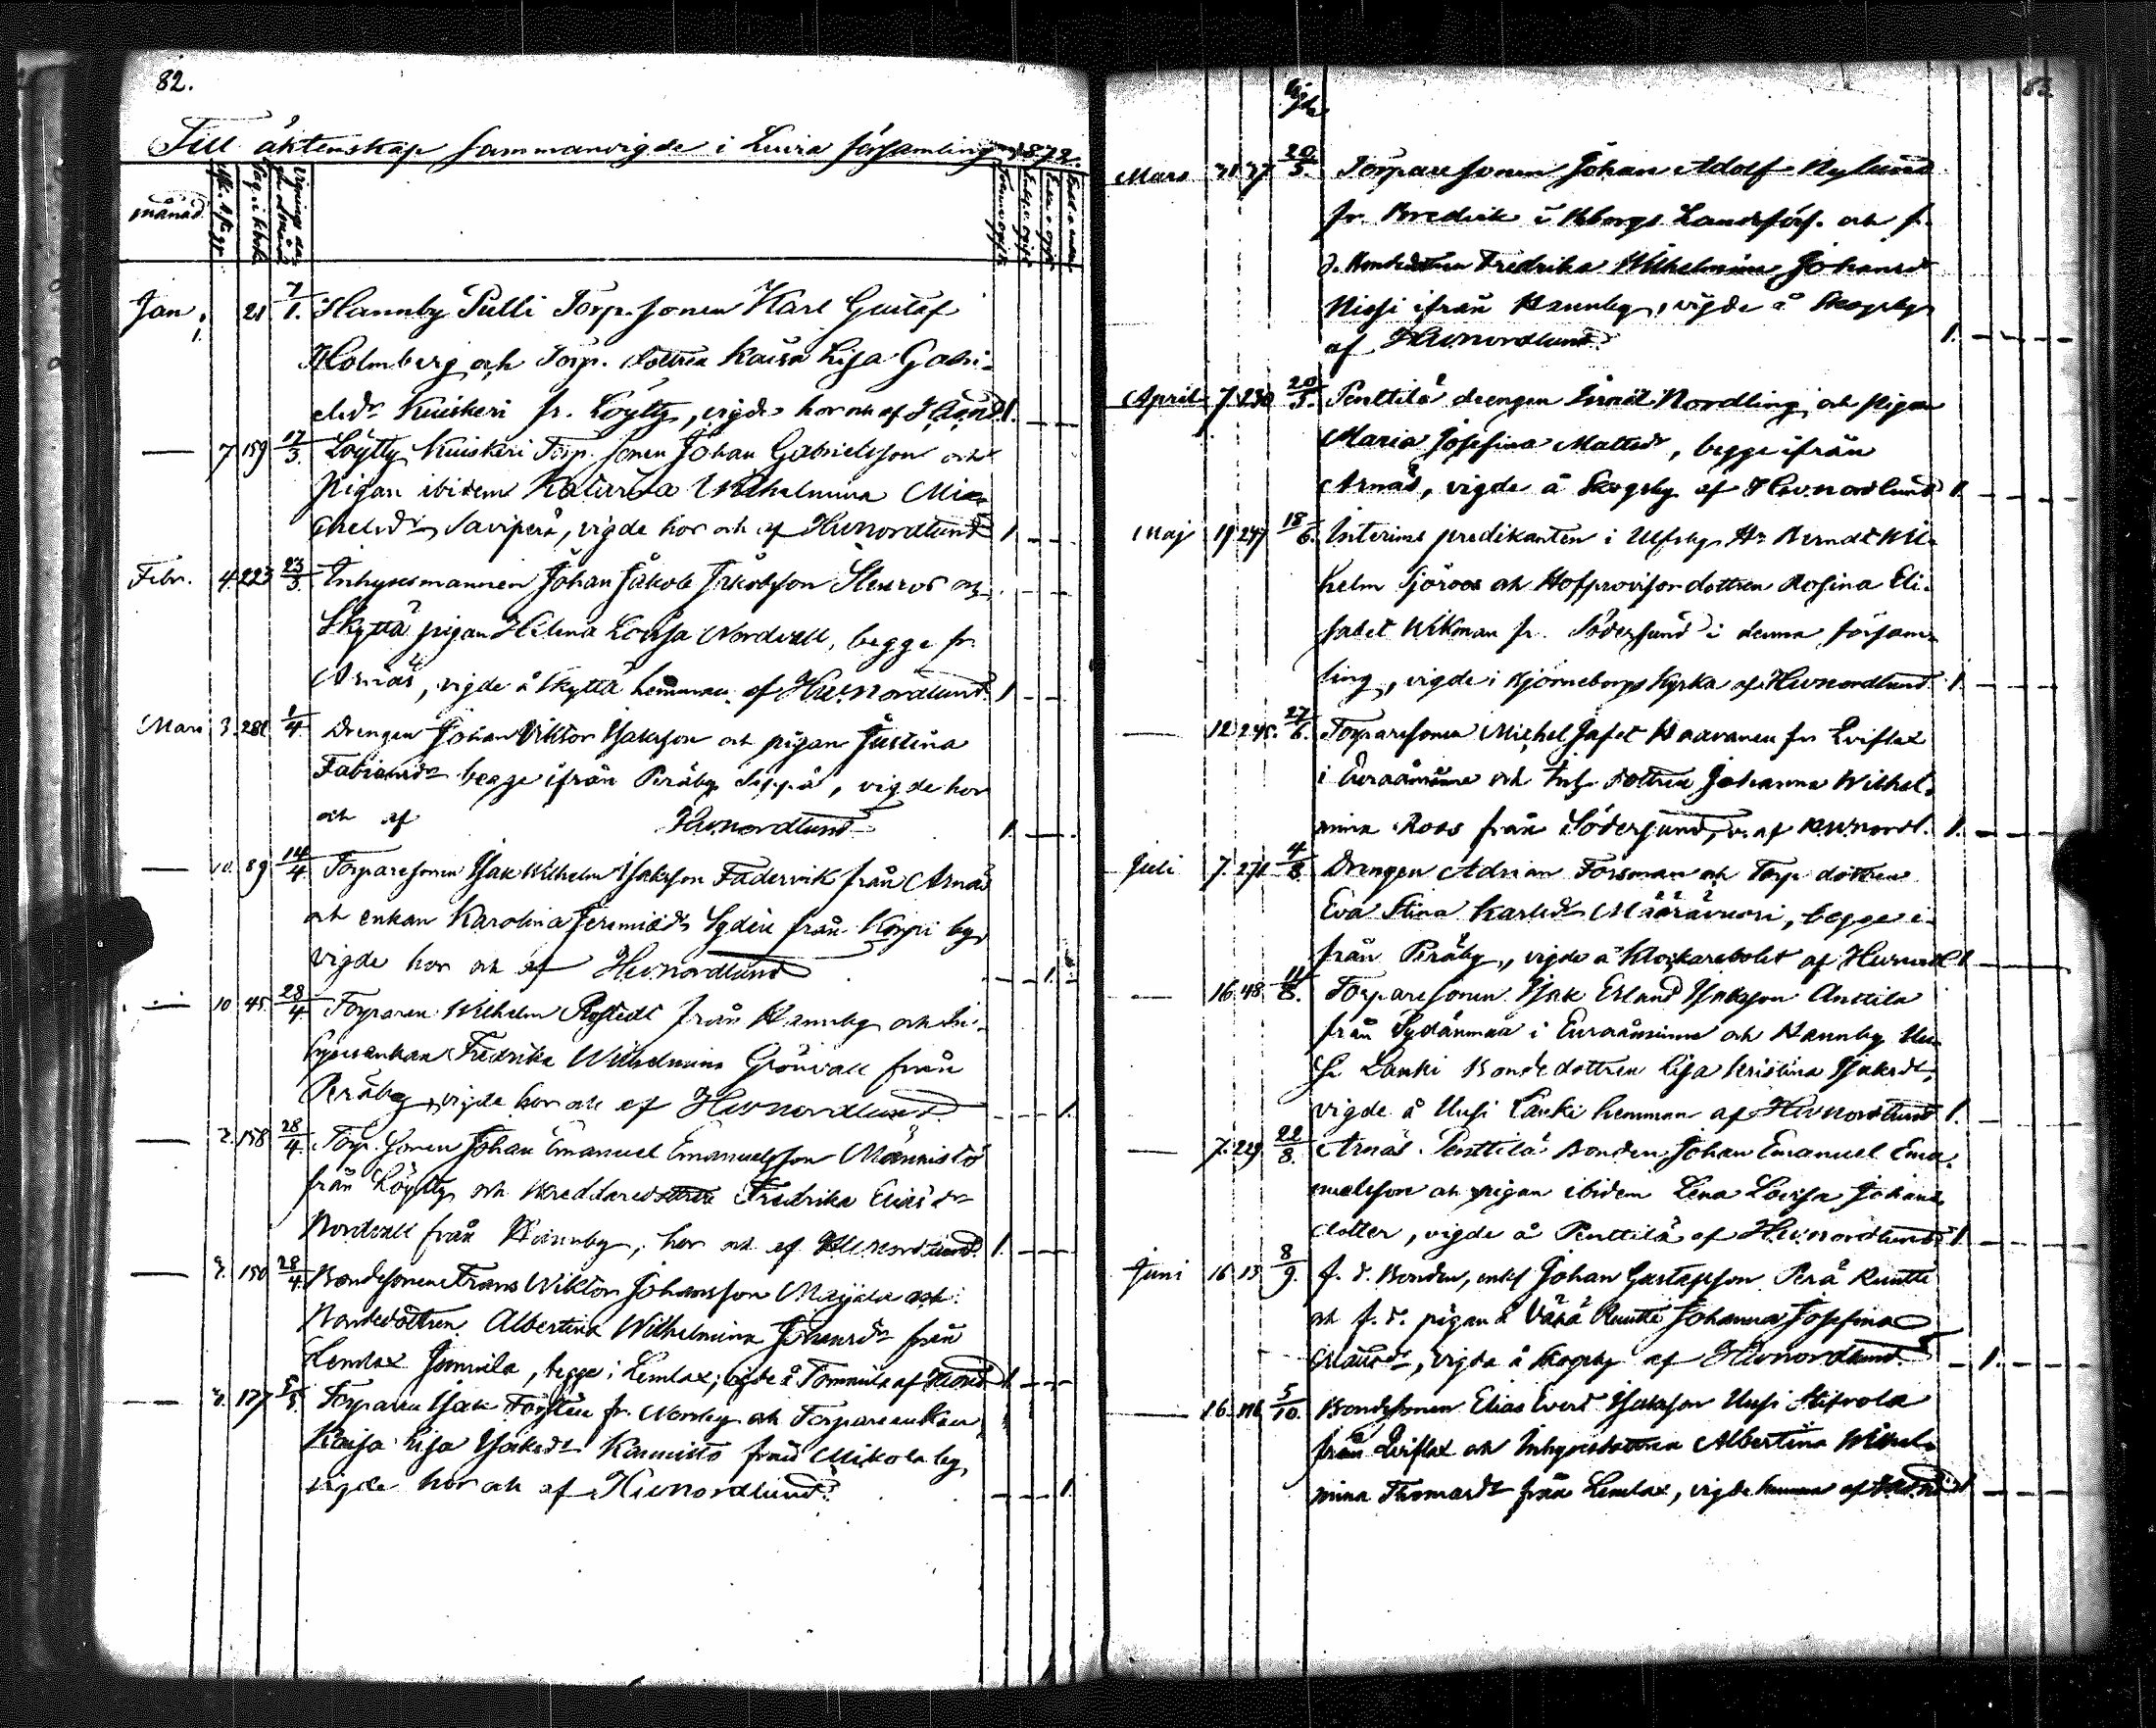 82.
Till äktenskap sammanvigde i Luvia församling 1872.
månad
Jan. 1. 21 7/1. Hannby Pulli Torp. sonen Karl Gustaf
Holmberg och Torp. dottren Kaisa Lisa Gabri-
elsdr Kuiskeri fr. Löytty, vigde hor och af 1.
— 7 159 17/3. Löytty Kuiskeri Torp. sonen Johan Gabrielsson och
pigan ibidem Katarina Wilhelmina Mi-
chelsdr Saviperä, vigde hor och af HWNordlund 1.
Febr. 4. 223 23/3. Inhysesmannen Johan Jakob Jakobsson Stenros och
Skyttä pigan Helena Lovisa Nordvall, begge fr.
Arnäs, vigde å Skyttä hemman af HWNordlund. 1
Mars 3. 281 1/4 Drengen Johan Viktor Isaksson och pigan Justina
Fabiansdr begge ifrån Peräby Seppä, vigde hor
och af HWNordlund 1.
— 10. 89 14/4. Torparesonen Isak Wilhelm Isaksson Fädervik från Arnäs
och enkan Karolina Jeremiædr Sydén från Korpi by,
vigde hor och af HWNordlund 1.
— 10 45 28/4. Torparen Wilhelm Rostedt från Hannby och In-
hysesenkan Fredrika Wilhelmina Grönvall från
Peräby, vigde hor och af HWNordlund 1.
— 2. 158 28/4. Torp. sonen Johan Emanuel Emanuelsson Männistö
från Löytty och Skreddaredottren Fredrika Eliasdr
Nordvall från Hannby, hor och af HWNordlund. 1.
— 9. 150 28/4. Bondesonen Frans Wiktor Johansson Maijala och
Bondedottren Albertina Wilhelmina Johansdr från
Lemlax Tommila, begge i Lemlax, vigde å Tommila af 1
— 3. 177 5/5. Torparen Isak Forstén fr. och Torpareenkan
Kaisa Lisa Isaksdr Kaunisto från Mikola by,
vigde hor och af HWNordlund. 1.
Mars 31 37 20/5. Torparesonen Johan Adolf Nylund
fr. Bredvik i Åborgs Landsförs. och f.
d. Bondedottren Fredrika Wilhelmina Johansdr
Nissi ifrån Hannby, vigde å Skogsby
af HWNordlund 1.
April 7. 230 20/5. Penttilä drengen Israël Nordling och pigan
Maria Josefina Mattsdr, begge ifrån
Arnäs, vigde å Skogsby af HWNordlund 1.
Maj 19 247 18/6. Interims predikanten i Ulfsby Hr Berndt Wil-
helm Sjöroos och Hofprovisordottren Rosina Eli-
sabet Wikman fr. Södersund i denna försam-
ling, vigde i Björneborgs kyrka af HWNordlund 1.
— 12 245. 27/6. Torparesonen Michel Jafet Haavanen fr. Lviflax
i Euraåminne och Inh. dottren Johanna Wilhel-
mina Roos från Södersund, v. af HWNordl. 1.
Juli 7. 271 4/8. Drengen Adrian Forsman och Torp. dottren
Eva Stina Karlsdr Määrävuori, begge i-
från Peräby, vigde å Klockarebolet af HWNordl 1
— 16. 48 11/8. Torparesonen Isak Erland Isaksson Anttila
från Sydänmaa i Euraåminne och Hannby Uu-
si Lanki Bondedottren Lisa Kristina Isaksdr,
vigde å Uusi Lanki hemman af HWNordlund 1.
— 7. 229 22/8. Arnäs Penttilä Bonden Johan Emanuel Ema-
nuelsson och pigan ibidem Lena Lovisa Johans-
dotter, vigde å Penttilä af HWNordlund. 1.
Juni 16 15 8/9. f. d. Bonden, enkl. Johan Gustafsson Perä Ruutti
och f. d. pigan å Vähä Ruutti Johanna Josefina
vigda å Skogsby af HWNordlund. 1.
— 16. 116 5/10. Bondesonen Elias Evert Isaksson Uusi
från Lviflax och Inhysesdottren Albertina Wilhel-
mina Thomasdr från Lemlax, vigde hemma af 1